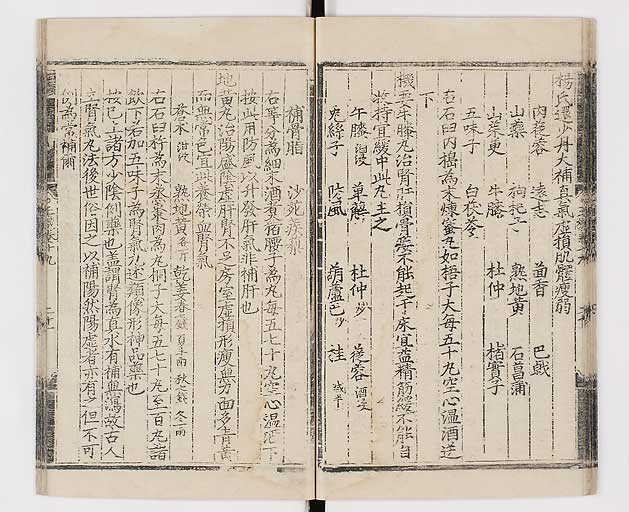 楊氏還少丹大補真氣虛損肌體瘦弱
肉蓯蓉 遠志 茴香 巴戟
山藥 枸杞子 熟地黃 石菖蒲
山茱萸 牛膝 杜仲 楮實子
五味子 白茯苓
右石臼內搗為末煉蜜丸如梧子大每五十九空心溫酒送
下
機要牛膝丸治腎肝損骨痿不能起于床宜益精筋緩不能自
收持宜緩中此丸主之
牛膝 酒浸 萆薢 杜仲 炒 蓯蓉 酒浸
兔絲子 防風 葫蘆巴 炒 桂 減半
補骨脂 沙苑疾藜
右等分為細末酒煮猪腰子為丸每五七十丸空心溫酒下
按此用防風以升發肝氣非補肝也
地黃丸治陽盛陰虛肝腎不足房室虛損形瘦無力面多青黃
而無常色宜此養榮血腎氣
蒼朮 泔浸 熟地黃 各一斤 乾姜 春 錢 夏半兩 秋 錢 冬一兩
右石臼杵為末蒸棗肉為丸桐子大每五七十丸至百丸諸
飲下若加五味子為腎氣丸述類象形神品藥也
按已上諸方少陰例藥也盖謂腎為真水有補無瀉故古人
立腎氣丸法後世俗因之以補陽然陽虛者亦有之但不可
例為常補爾